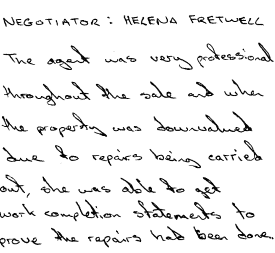 NEGOTIATOR : HELENA FRETWELL
The agent was very professional
throughout the sale and when
the property was downvalued
due to repairs being carried
out, she was able to get
work completion statements to
prove the repairs had been done..